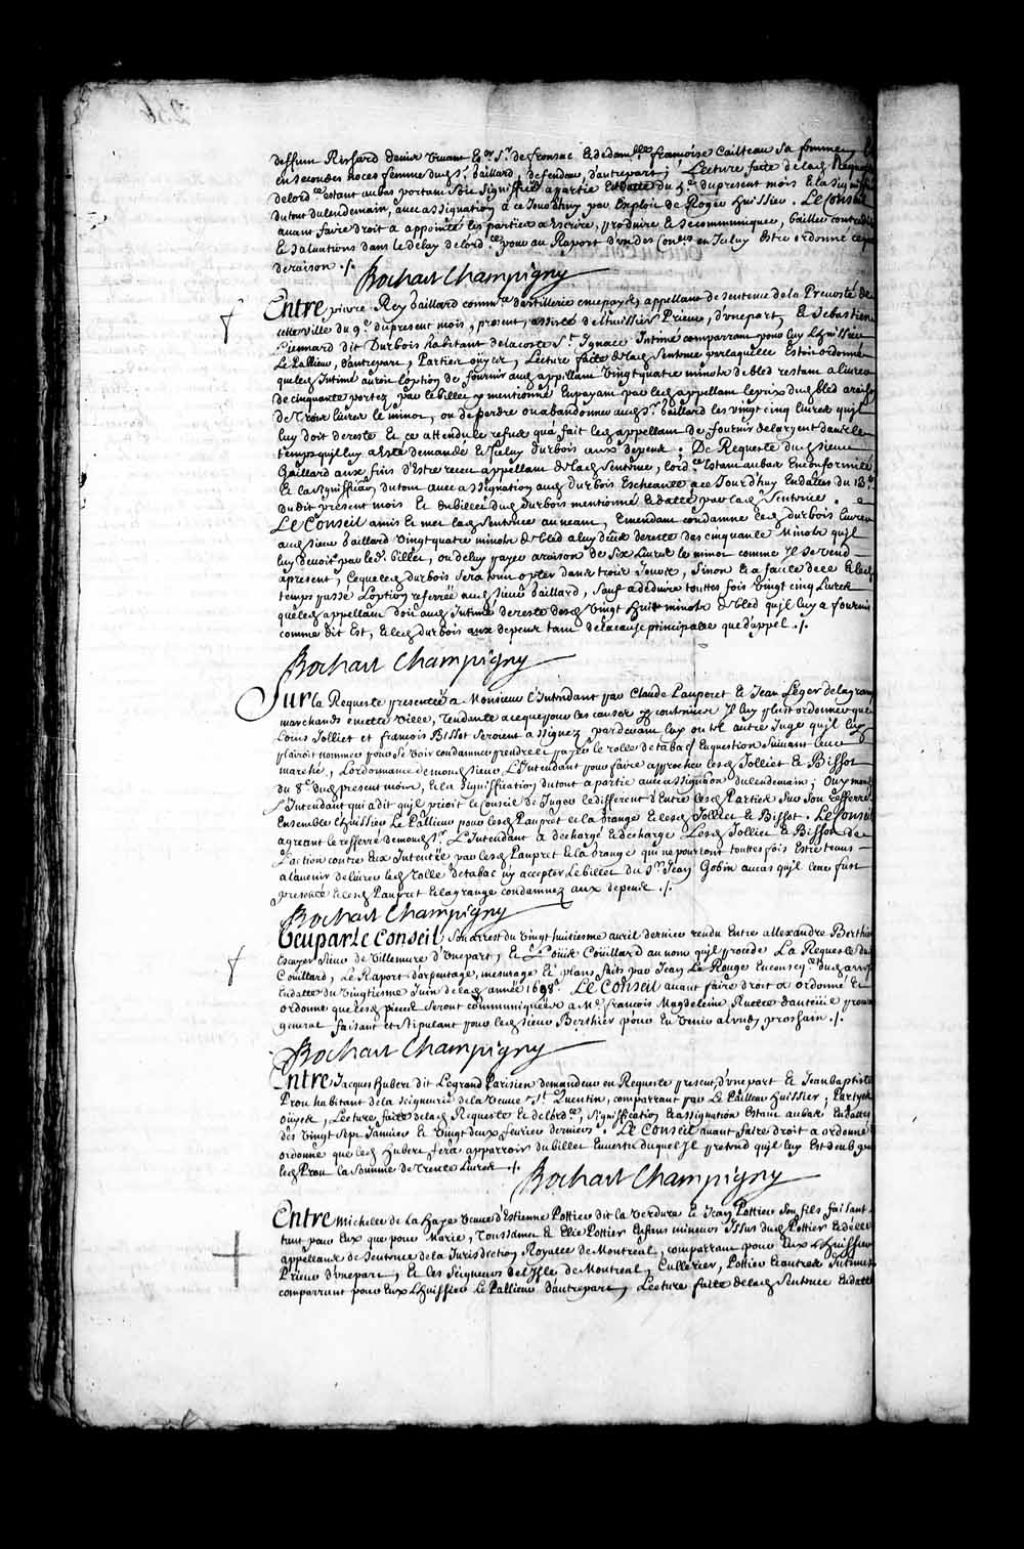 deffunt Richard Denis vivant Esc.r S.r de fronsac & de dam.lle françoise Cailteau sa femme
en secondes noces femme dud. S.r Gaillard, deffendeur, d'autre part; Lecture faite de lad. Requeste
de l'ord.ce estant au bas portant soit signiffié a partie en datte du du present mois & la signiff.
du tout du lendemain, avec assignation a ce Jourd'huy par Exploit de Roger huissier. Le Conseil
avant faire droit a appointé les parties a Escrire, produire & se communiquer, bailler contredits
& Saluations dans le delay de l'ord.ce pour au Raport d'un des Con.ers en Iceluy Estre ordonné ce que
de raison ./.
Bochart Champigny
Entre pierre Rey Gaillard comm.re d'artillerie en ce pays, appellant de sentence de la Prevosté de
cette ville du 9.e du present mois, present, assisté de l'huissier Prieur, d'une part, & Sebastien
Lienard dit Durbois habitant de la coste S.t Ignace Intimé comparant pour luy L'huissier
Le Pallieur, d'autre part, Parties oüyes, Lecture faite de lad. Sentence par laquelle Est ordonné
que led. Intimé auroit l'option de fournir aud. appellant Vingt quatre minots de bled restant a livrer
de cinquante portez par le billet y mentionné En payant par led. appellant le prix dud. bled a raison
de Trois livres le minot, ou de perdre ou abandonner aud. S.r Gaillard les vingt cinq livres qu'il
luy doit de reste Et ce attendu le refus qu'a fait led. appellant de fournir de l'argent dans le
temps qu'il luy a esté demandé & Iceluy Durbois aux depens; De Requeste du S.r sieur
Gaillard aux fins d'Estre receu appellant de lad. Sentence, l'ord.ce Estant au bas En conformité
& la Signiffication du tout avec assignation aud. Durbois Escheante a ce Jourd'huy En dattes du 13.e
du dit present mois Et du billet dud. Durbois mentionné & datté par lad. Sentence.
Le Conseil a mis & met lad. Sentence au neant, Emendant condamne led. Durbois Livrer
aud. sieur Gaillard Vingt quatre minots de bled a luy deubs de reste des cinquante Minots qu'il
luy devoit par led. billet, ou de luy payer a raison de Six Livres le minot comme Il se vend
a present, Ce que led. Durbois sera tenu opter dans trois Jours, Sinon & a faute de ce & led.
temps passé L'option referrée aud. sieur Gaillard, Sauf a deduire touttes fois Vingt cinq Livres
que led. appellant doit aud. Intimé de reste desd. Vingt huit minots de bled qu'il luy a fournis
comme dit Est, & led. Durbois aux depens tant de la cause principalle que d'appel ./.
Bochart Champigny
Sur la Requeste presentée a Monsieur L'Intendant par Claude Pauperet & Jean Leger de la grange
marchands en cette Ville, Tendante a ce que pour les causes y contenües Il luy plust ordonner que
Louis Jolliet et François Bissot seroient assignez pardevant luy ou tel autre Juge qu'il luy
plairoit nommer pour se voir condamner prendre & payer le rolle de tabac En question suivant leur
marché, L'ordonnance de mond. sieur L'Intendant pour faire approcher lesd. Jolliet & Bissot
du 8.e dud. present mois, & la Signiffication du tout a partie avec assignation du lendemain; Ouy mond.
S.r Intendant qui a dit qu'il prioit le Conseil de Juger le different d'Entre lesd. Parties sur son refferré
Ensemble L'huissier Le Pallieur pour lesd. Pauperet et la Grange & lesd. Jolliet & Bissot. Le Conseil
agreant le refferré de mond. S.r L'Intendant a dechargé & decharge Lesd. Jolliet & Bissot de
L'action contre Eux Intentée par lesd. Paupret & la Grange qui ne pourront touttes fois Estre tenus
a l'avenir de livrer led. Rolle de tabac n'y accepter le billet du S.r Jean Gobin au cas qu'il leur fust
presenté & lesd. Paupret & la grange condamnez aux depens ./.
Bochart Champigny
Veu par le Conseil Son arrest du vingt huitiesme avril dernier rendu Entre allexandre Berthier
Escuyer Sieur de Villemure d'une part, Et Loüis Coüillard au nom qu'il procede La Requeste dud.
Coüillard, Le Raport d'arpentage, mesurage Et plans faits par Jean Le Rouge En conseq.ce dud. arrest
En datte du vingtiesme Juin de lad. année 1698. Le Conseil avant faire droit a ordonné Et
ordonne que lesd. pieces seront communiquées a M.e François Magdeleine Ruette d'auteüil procureur
general faisant et stipulant pour led. sieur Berthier pour En venir a lundy prochain ./.
Bochart Champigny
Entre Jacques hubert dit Legrand Parisien demandeur en Requeste present, d'une part Et Jean baptiste
Prou habitant de la seigneurie de la Veuve S.t Quentin, comparant par Le Pallieur huissier; Partyes
oüyes, Lecture faite de lad. Requeste & de l'ord.ce, signiffication & assignation Estant au bas En dattes
des vingt sept Janvier & Vingt deux fevrier derniers. Le Conseil avant faire droit a ordonné
ordonne que led. hubert fera apparroir du billet En vertu duquel Il pretend qu'il luy Est deub par
led. Prou la somme de Trente Livres ./.
Bochart Champigny
Entre Michelle de La haye Veuve d'Estienne Pottier dit la Verdure & Jean Pottier son fils faisant
tant pour Eux que pour Marie, Toussaint & Elie Pottier Enfans mineurs Issus dud. Pottier & d'elle
appellans de Sentence de la Jurisdiction Royalle de Montreal, comparant pour Eux L'huissier
Prieur d'une part, Et Les Seigneurs de l'Isle de Montreal, Cullerier, Pottier & autres Intimez
comparant pour Eux L'huissier Le Pallieur d'autre part, Lecture faite de lad. Sentence En datte